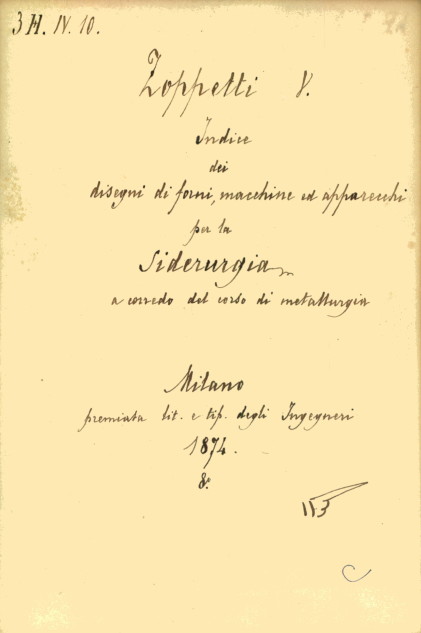 3 H. IV. 10.
Zoppetti V.
Indice
dei
disegni di forni, macchine ed apparecchi
per la
Siderurgia
a corredo del corso di metallurgia
Milano
premiata lit. e tip. degli Ingegneri
1874.
8.°